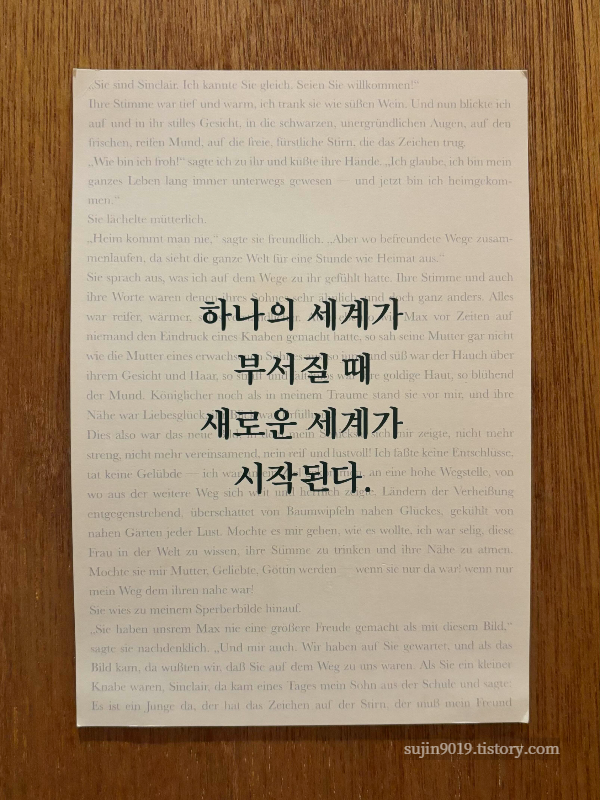 „Sie sind Sinclair. Ich kannte Sie gleich. Seien Sie willkommen!“
Ihre Stimme war tief und warm, ich trank sie wie süßen Wein. Und nun blickte ich
auf und in ihr stilles Gesicht, in die schwarzen, unergründlichen Augen, auf den
frischen, reifen Mund, auf die freie, fürstliche Stirn, die das Zeichen trug.
„Wie bin ich froh!“ sagte ich zu ihr und küßte ihre Hände. „Ich glaube, ich bin mein
ganzes Leben lang immer unterwegs gewesen — und jetzt bin ich heimgekom-
men.“
Sie lächelte mütterlich.
„Heim kommt man nie,“ sagte sie freundlich. „Aber wo befreundete Wege zusam-
menlaufen, da sieht die ganze Welt für eine Stunde wie Heimat aus.“
Sie sprach aus, was ich auf dem Wege zu ihr gefühlt hatte. Ihre Stimme und auch
ihre Worte waren denen ihres Sohnes sehr und doch ganz anders. Alles
war reifer, wärmer, Max vor Zeiten auf
niemand den Eindruck eines Knaben gemacht hatte, so sah seine Mutter gar nicht
wie die Mutter eines erwachsenen und süß war der Hauch über
ihrem Gesicht und Haar, so ihre goldige Haut, so blühend
der Mund. Königlicher noch als in meinem Traume stand sie vor mir, und ihre
Nähe war Liebesglück,
하나의 세계가
부서질 때
새로운 세계가
시작된다.
Dies also war das neue mir zeigte, nicht mehr
streng, nicht mehr vereinsamend, nein reif und lustvoll! Ich faßte keine Entschlüsse,
tat keine Gelübde — ich war an eine hohe Wegstelle, von
wo aus der weitere Weg sich weit und herrlich zeigte, Ländern der Verheißung
entgegenstrebend, überschattet von Baumwipfeln nahen Glückes, gekühlt von
nahen Gärten jeder Lust. Mochte es mir gehen, wie es wollte, ich war selig, diese
Frau in der Welt zu wissen, ihre Stimme zu trinken und ihre Nähe zu atmen.
Mochte sie mir Mutter, Geliebte, Göttin werden — wenn sie nur da war! wenn nur
mein Weg dem ihren nahe war!
Sie wies zu meinem Sperberbilde hinauf.
„Sie haben unsrem Max nie eine größere Freude gemacht als mit diesem Bild,“
sagte sie nachdenklich. „Und mir auch. Wir haben auf Sie gewartet, und als das
Bild kam, da wußten wir, daß Sie auf dem Weg zu uns waren. Als Sie ein kleiner
Knabe waren, Sinclair, da kam eines Tages mein Sohn aus der Schule und sagte:
Es ist ein Junge da, der hat das Zeichen auf der Stirn, der muß mein Freund
sujin9019.tistory.com